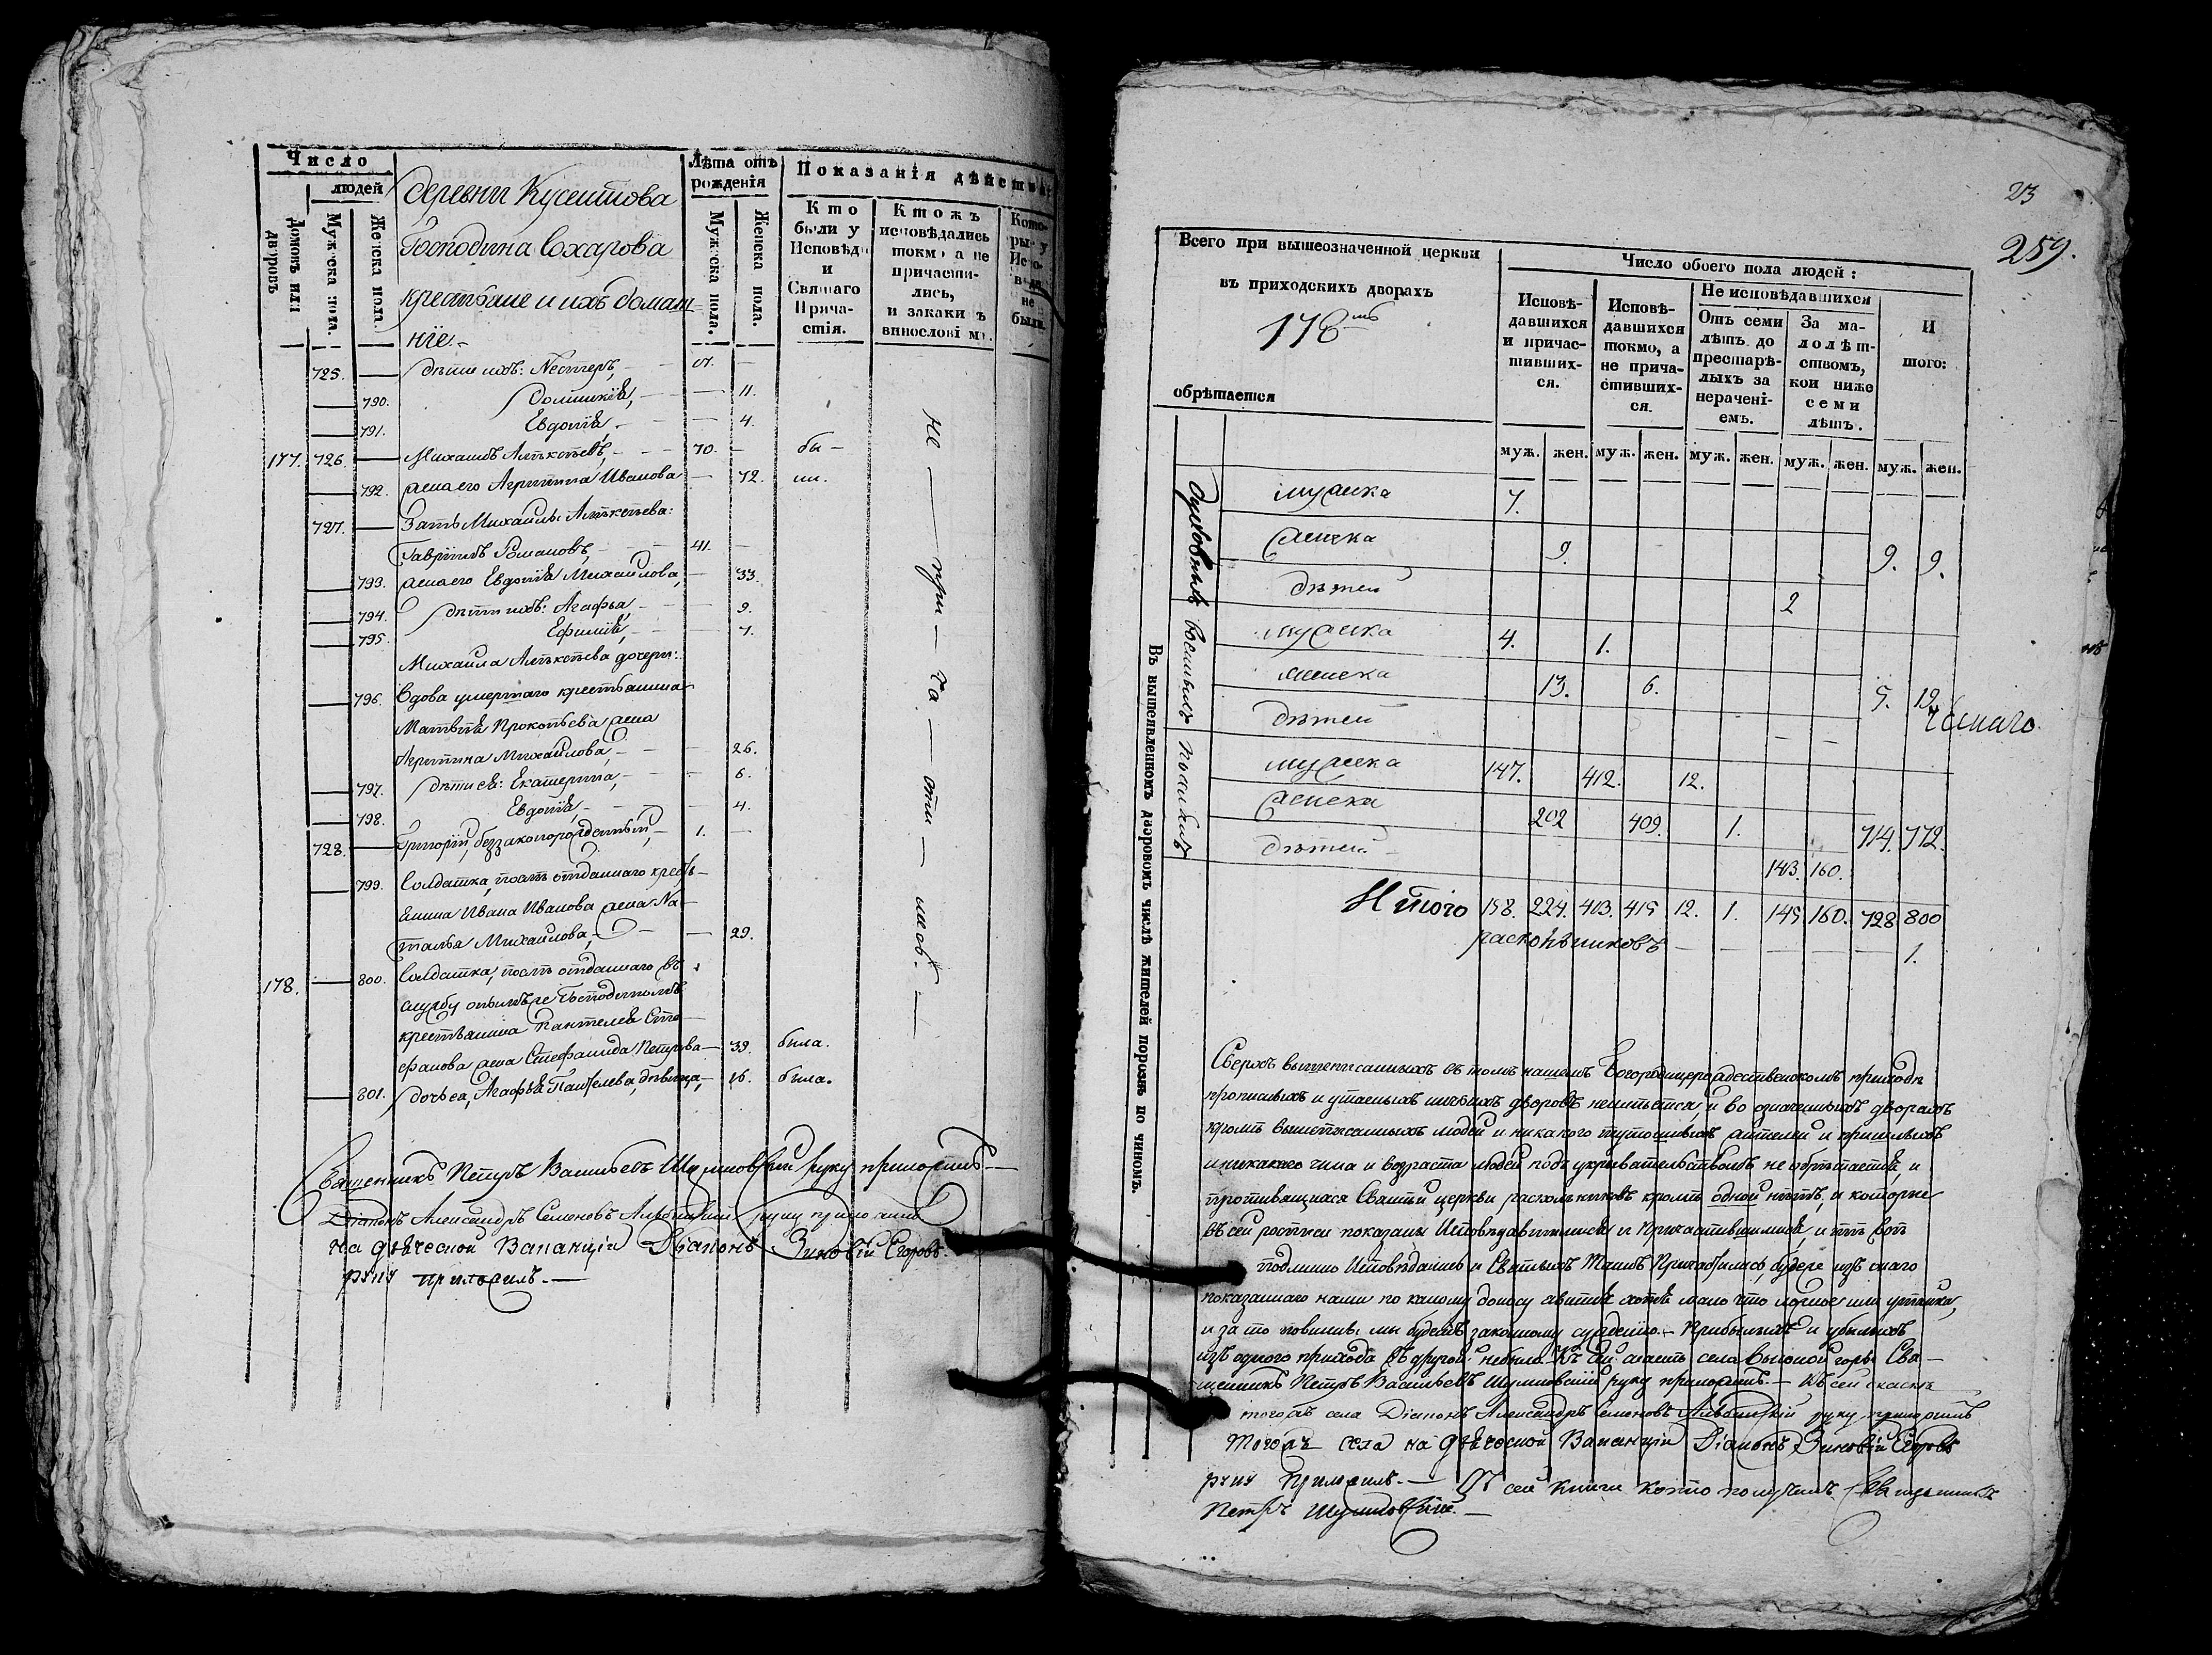 Число
людей
Домовъ или дворовъ
Мужеска пола.
Женска пола.
Деревни Кусеитова
Господина Сохарова
крестьяне и ихъ домаш-
нїе
Лѣта отъ рожденія
Мужеска пола.
Женска пола.
Показанія дѣйства
Кто были у Исповѣди и Святаго Причастія.
Ктожъ исповѣдались токмо а не причастились, и за каким винословіемъ.
Которые у Исповѣди не были.
725. — дѣти ихъ: Нестеръ, —
— 790. — 11.
— 791. Евдокїя, — 4.
177. 726. — Михаилъ Алексѣевъ, 70. — бы —
— 792. жена его Агрипина Иванова — 72. ли.
727. — Зять Михаилы Алексѣева:
Гаврїилъ Романовъ, 41. —
— 793. жена его Евдокїя Михаилова, — 33.
— 794. дѣти ихъ: Агафья — 9.
— 795. Ефимїя, — 7.
Михаила Алексѣева дочери:
— 796. Вдова умершаго крестьянина
Матвѣя Прокопьева жена
Агрипина Михаилова, — 26.
— 797. дѣти ея: Екатерина, — 6.
— 798. Евдокїя, — 4.
728. — Григорїй, беззаконорожденный, 1. —
— 799. Солдатка, отданнаго кресть-
янина Ивана Иванова жена На-
талья Михаилова, — 29.
178. — 800. Солдатка, отданнаго въ
службу Господиномъ
крестьянина Пантелея Сте-
фанова жена Стефанида Петрова — 39. была.
— 801. дочь ея, Агафья Пантелева, дѣвица, — 16. была.
не — при — ча — сти — лись. —
Священникъ Петръ Васильевъ Шумиловскїй руку приложилъ —
Дїаконъ Александръ Семеновъ руку приложилъ
На дьяческой Ваканцїи Дїаконъ Зиновїй Егоровъ
руку приложилъ. —
23
259.
Всего при вышеозначенной церкви
въ приходскихъ дворахъ
178
обрѣтается
Число обоего пола людей:
Исповѣдавшихся и причастившихся.
Исповѣдавшихся токмо, а не причастившихся.
Не исповѣдавшихся
Отъ семи лѣтъ до престарѣлыхъ за нераченіемъ.
За малолѣтствомъ, кои ниже семи лѣтъ.
И того:
муж. жен. муж. жен. муж. жен. муж. жен. муж. жен.
Въ вышеявленномъ дворовомъ числѣ жителей порознь по чиномъ.
Духовныхъ
мужска 7.
женска 9. 9. 9.
дѣтей 2
Военныхъ
мужска 4. 1.
женска 13. 6. 5. 19.
дѣтей — —
чѣснаго
мужска 147. 412. 12.
женска 202 409. 1. 714. 772.
дѣтей 143. 160.
Итого 158. 224. 413. 415 12. 1. 145 160. 728 800
раскольниковъ — — — — 1.
Сверхъ вышеписанныхъ въ томъ нашемъ Богородицерождественскомъ приходѣ
прописныхъ и утаеныхъ дворовъ неимѣется, и во означенныхъ дворахъ
кромѣ вышеписанныхъ людей и никакого жителей и пришлыхъ
и никакаго чина и возраста людей подъ укрывательствомъ не обрѣтается, и
противящихся Святѣй церкви раскольниковъ кромѣ одной нѣтъ, и которые
въ сей росписи показаны Исповѣдавшимися и Причастившимися, и тѣ всѣ
подлинно Исповѣдались и Святыхъ Таинъ Причастились, буде изъ
показаннаго нами по какому доносу явится хотя мало что ложное или утайка,
и за то повинны мы будемъ законному сужденїю. — Прибылыхъ и убылыхъ
изъ одного прихода въ другой небыло. Къ сей села Высокой горы Свя-
щенникъ Петръ Васильевъ Шумиловскїй руку приложилъ. — Къ сей скаскѣ
тогожъ села Дїаконъ Александръ Семеновъ руку приложилъ
Тогожъ села на дьяческой Ваканцїи Дїаконъ Зиновїй Егоровъ
руку приложилъ. — Съ сей книги копїю получилъ Священникъ
Петръ Шумиловскїй. —